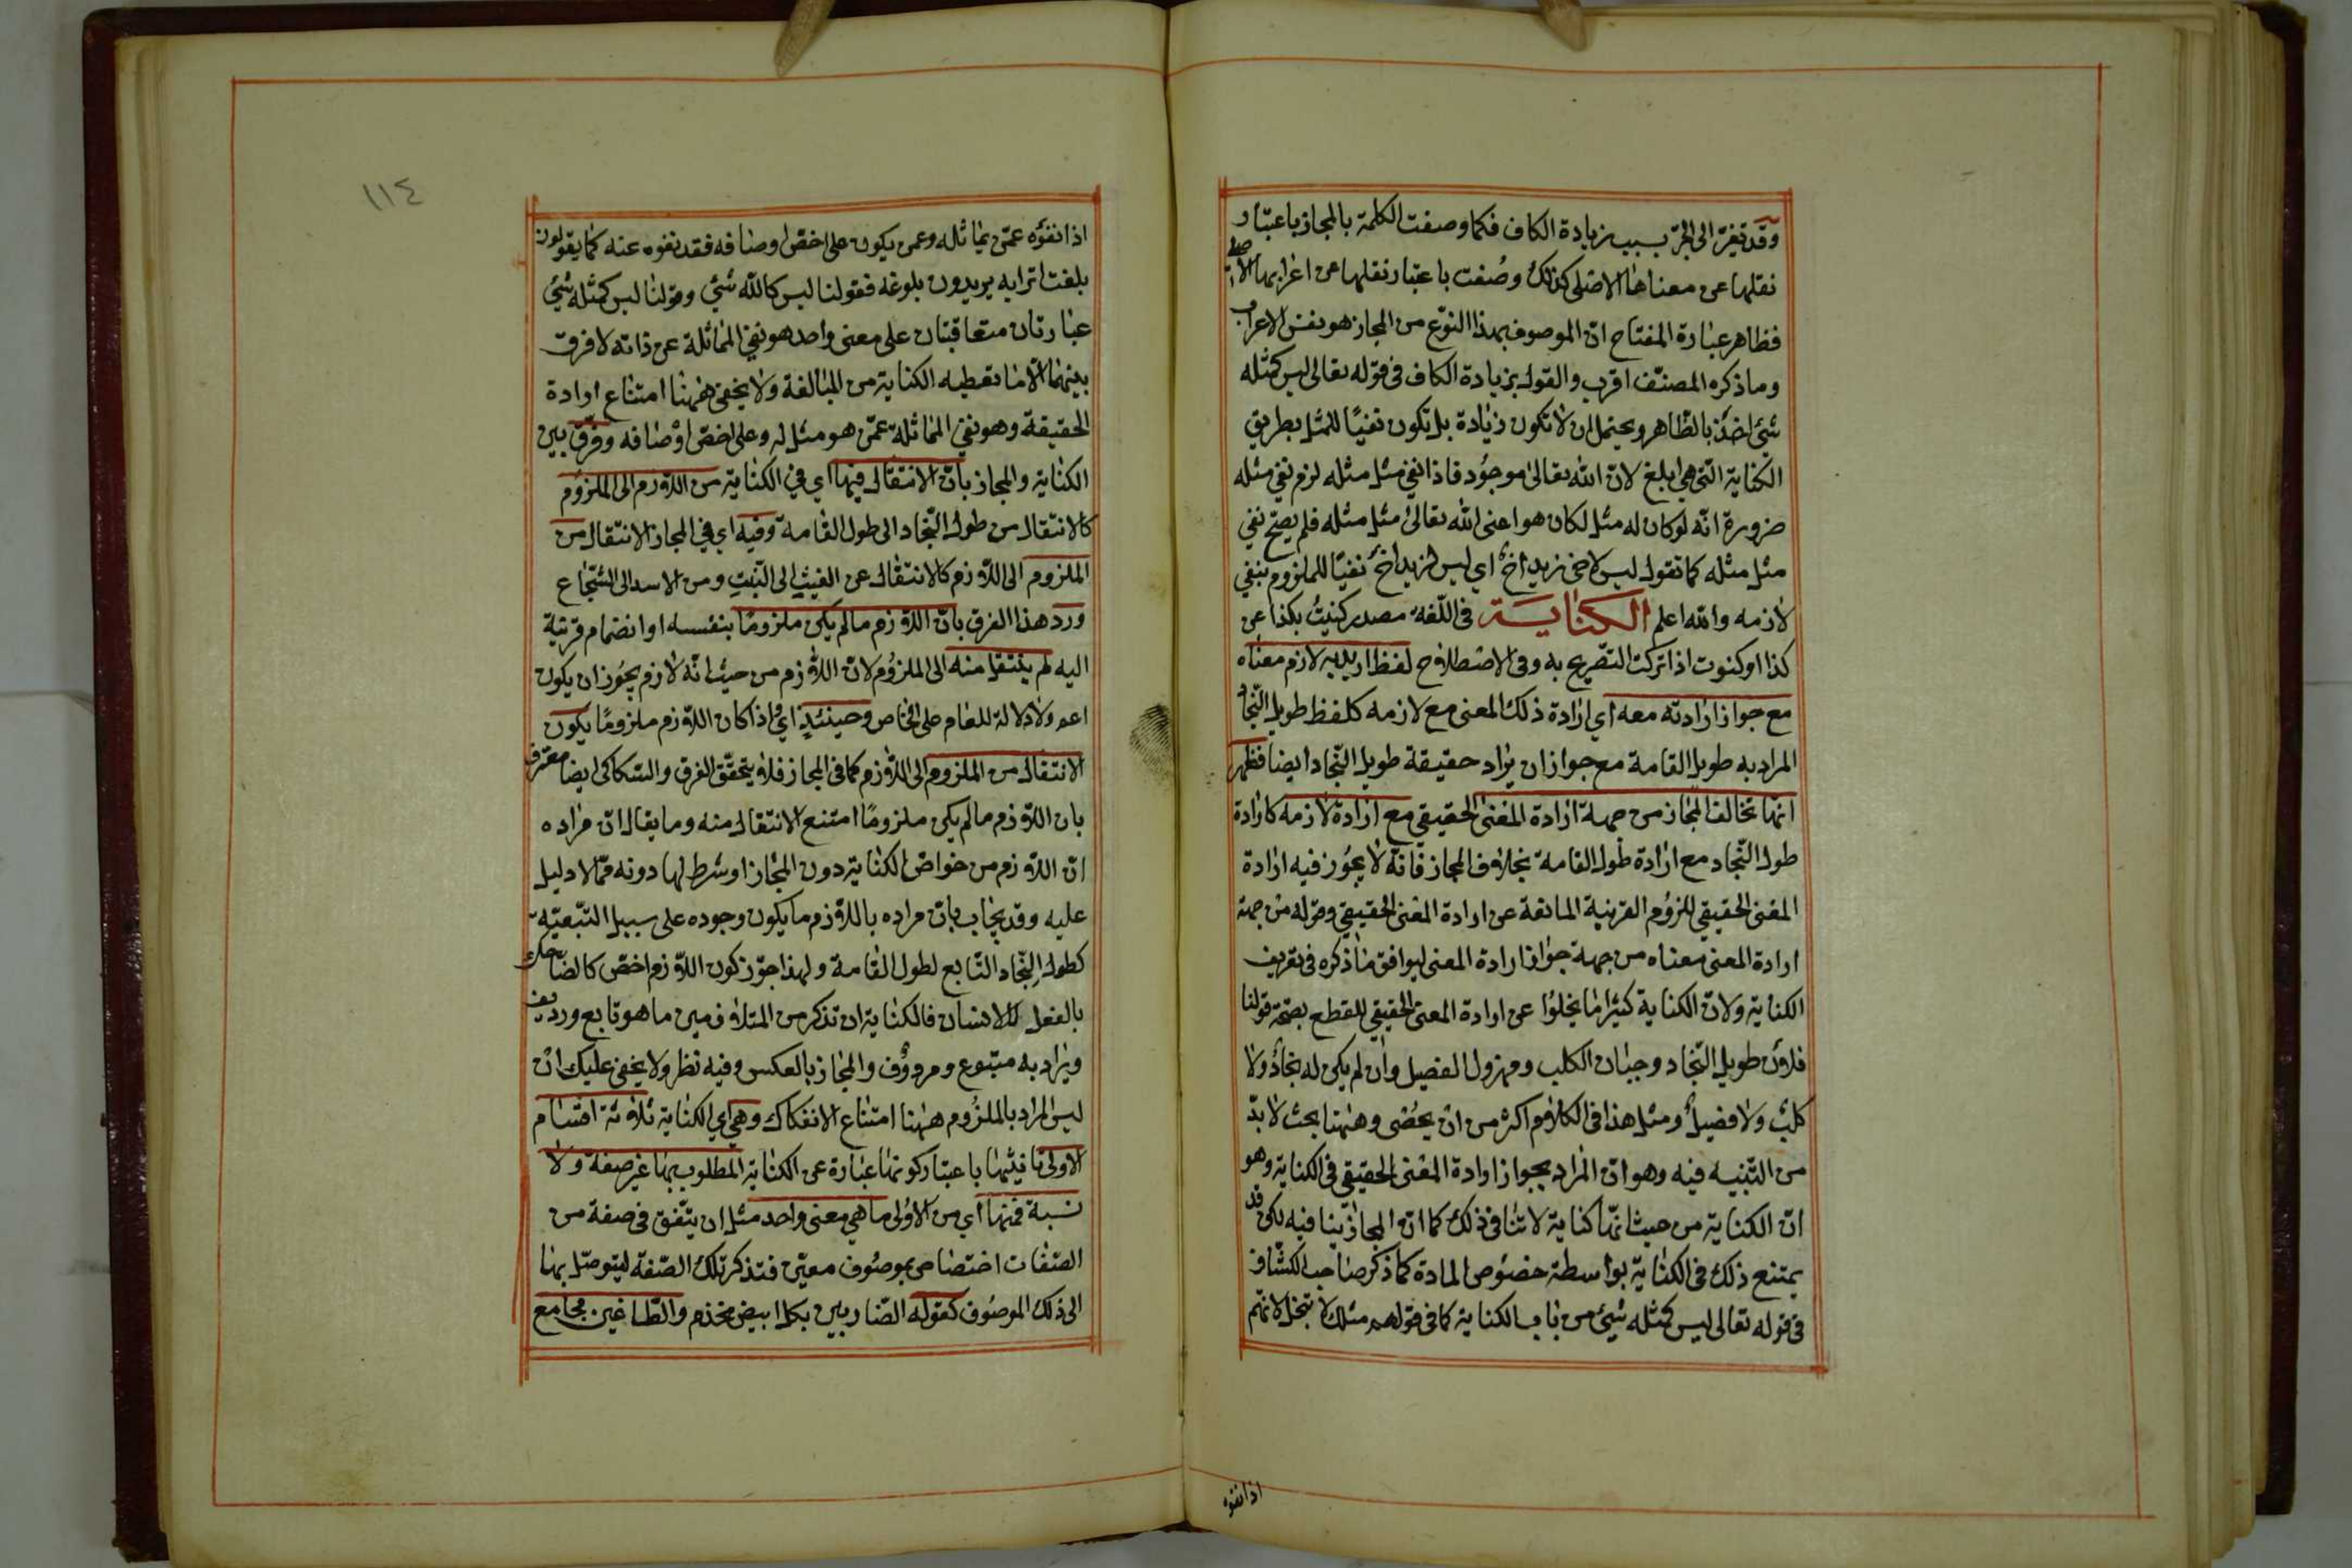 وقد تغيّر الى الجرّ بسبب زيادة الكاف فكما وصفت الكلمة بالمجاز باعتبار
نقلها عن معناها الاصلى كذلك وصُفت باعتبار نقلها عن اعرابها الاصلى
فظاهر عبارة المفتاح انّ الموصوف بهذا النوّع من المجاز هو نفس الاعراب
وما ذكره المصنّف اقرب والقول بزيادة الكاف فى قوله تعالى ليس كمثله
شئ اخذٌ بالظّاهر ويحتمل ان لا تكون زيادة بل تكون نفيًا للمثل بطريق
الكناية الّتى هى ابلغ لانّ الله تعالى موجُود فاذا نفى مثل مثله لزم نفى مثله
ضرورة انّه لو كان له مثل لكان هو اعنى الله تعالىٰ مثل مثله فلم يصحّ نفى
مثل مثله كما تقول ليس لاخى زيد اخٌ اى ليس لزيد اخٌ نفيًا للملزوم بنفى
لازمه والله اعلم الكناية فى اللّغة مصدر كنيتُ بكذا عن
كذا او كنوت اذا تركت التّصريح به وفى الاصطلاح لفظ اريد به لازم معناه
مع جواز ارادته معه اى ارادة ذلك المعنى مع لازمه كلفظ طويل النّجاد
المراد به طويل القامة مع جواز ان يراد حقيقة طويل النّجاد ايضا فظهر
انّها تخالف المجاز من جهة ارادة المعنى الحقيقى مع ارادة لازمه كارادة
طول النّجاد مع ارادة طول القامة بخلاف المجاز فانّه لا يجُوز فيه ارادة
المعنى الحقيقى للزوُم القرينة المانعة عن ارادة المعنى الحقيقى وقوله من جهة
ارادة المعنى معناه من جهة جواز ارادة المعنى ليوافق ما ذكره فى تعريف
الكناية ولانّ الكناية كثيرًا ما يخلوا عن ارادة المعنى الحقيقى للقطع بصحّة قولنا
فلان طويل النّجاد وجبان الكلب ومهزول الفصيل وان لم يكن له نجادٌ ولا
كلبٌ ولا فصيلٌ ومثل هذا فى الكلام اكثر من ان يحُصى وههنا بحث لا بدّ
من التّنبيه فيه وهو انّ المراد بجواز ارادة المعنى الحقيقى فى الكناية وهو
انّ الكناية من حيث انّها كناية لا تنافى ذلك كما انّ المجاز ينافيه لكن قد
يمتنع ذلك فى الكناية بواسطة خصُوص المادة كما ذكر صاحب الكشّاف
فى قوله تعالى ليس كمثله شئ من باب الكناية كما فى قولهم مثلك لا يبخل لانّهم
اذا نفوه
١١٤
اذا نفوه عمّن يماثله وعمن يكون على اخصّ اوصافه فقد نفوه عنه كما يقولون
بلغت اترابه يريدون بلوغه فقولنا ليس كالله شئ وقولنا ليس كمثله شئ
عبارتان متعاقبتان على معنى واحد هو نفى المماثلة عن ذاته لا فرق
بينهما الّا ما تعطيه الكناية من المبالغة ولا يخفى ههنا امتناع ارادة
الحقيقة وهو نفى المماثلة عمّن هو مثل له وعلى اخصّ اوصافه وفرّق بين
الكناية والمجاز بانّ الانتقال فيها اى فى الكناية من اللازم الى الملزوم
كالانتقال من طول النّجاد الى طول القامة وفيه اى فى المجاز الانتقال من
الملزوم الى اللازم كالانتقال عن الغيث الى النّبت ومن الاسد الى الشّجاع
ورد هذا الفرق بانّ اللازم ما لم يكن ملزومًا بنفسه او انضمام قرينة
اليه لم ينتقل منه الى الملزُوم لانّ اللازم من حيث انّه لازم يجُوز ان يكون
اعم ولا دلالة للعام على الخاص وحينئذٍ اى اذا كان اللازم ملزومًا يكون
الانتقال من الملزوم الى اللازم كما فى المجاز فلا يتحقّق الفرق والسّكاكى ايضا معترف
بان اللازم ما لم يكن ملزومًا امتنع الانتقال منه وما يقال انّ مراده
انّ اللازم من خواصّ الكناية دون المجاز او شرط لها دونه فممّا لا دليل
عليه وقد يجاب بانّ مراده باللازم ما يكون وجوده على سبيل التّبعيّة
كطول النّجاد التّابع لطول القامة ولهذا جوّز كون اللازم اخصّ كالضّاحك
بالفعل للانسان فالكناية ان تذكر من المتلازمين ما هو تابع ورديف
ويراد به متبوع ومردوُف والمجاز بالعكس وفيه نظر ولا يخفى عليك ان
ليس المراد بالملزُوم ههنا امتناع الانفكاك وهى اى الكناية ثلاثة اقسام
الاولى تانيثها باعتبار كونها عبارة عن الكناية المطلوب بها غير صفة ولا
نسبة فمنها اى من الاوُلى ما هى معنى واحد مثل ان يتّفق فى صفة من
الصّفات اختصاص بموصُوف معيّن فتذكر تلك الصّفة ليتوصّل بها
الى ذلك الموصُوف كقوله الضّاربين بكل ابيض مخذم والطّاعنين مجامع